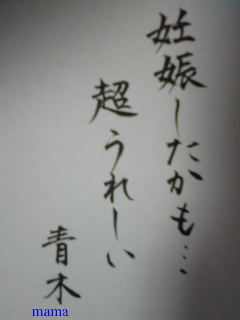 妊娠したかも…
超うれしい
青木
mama